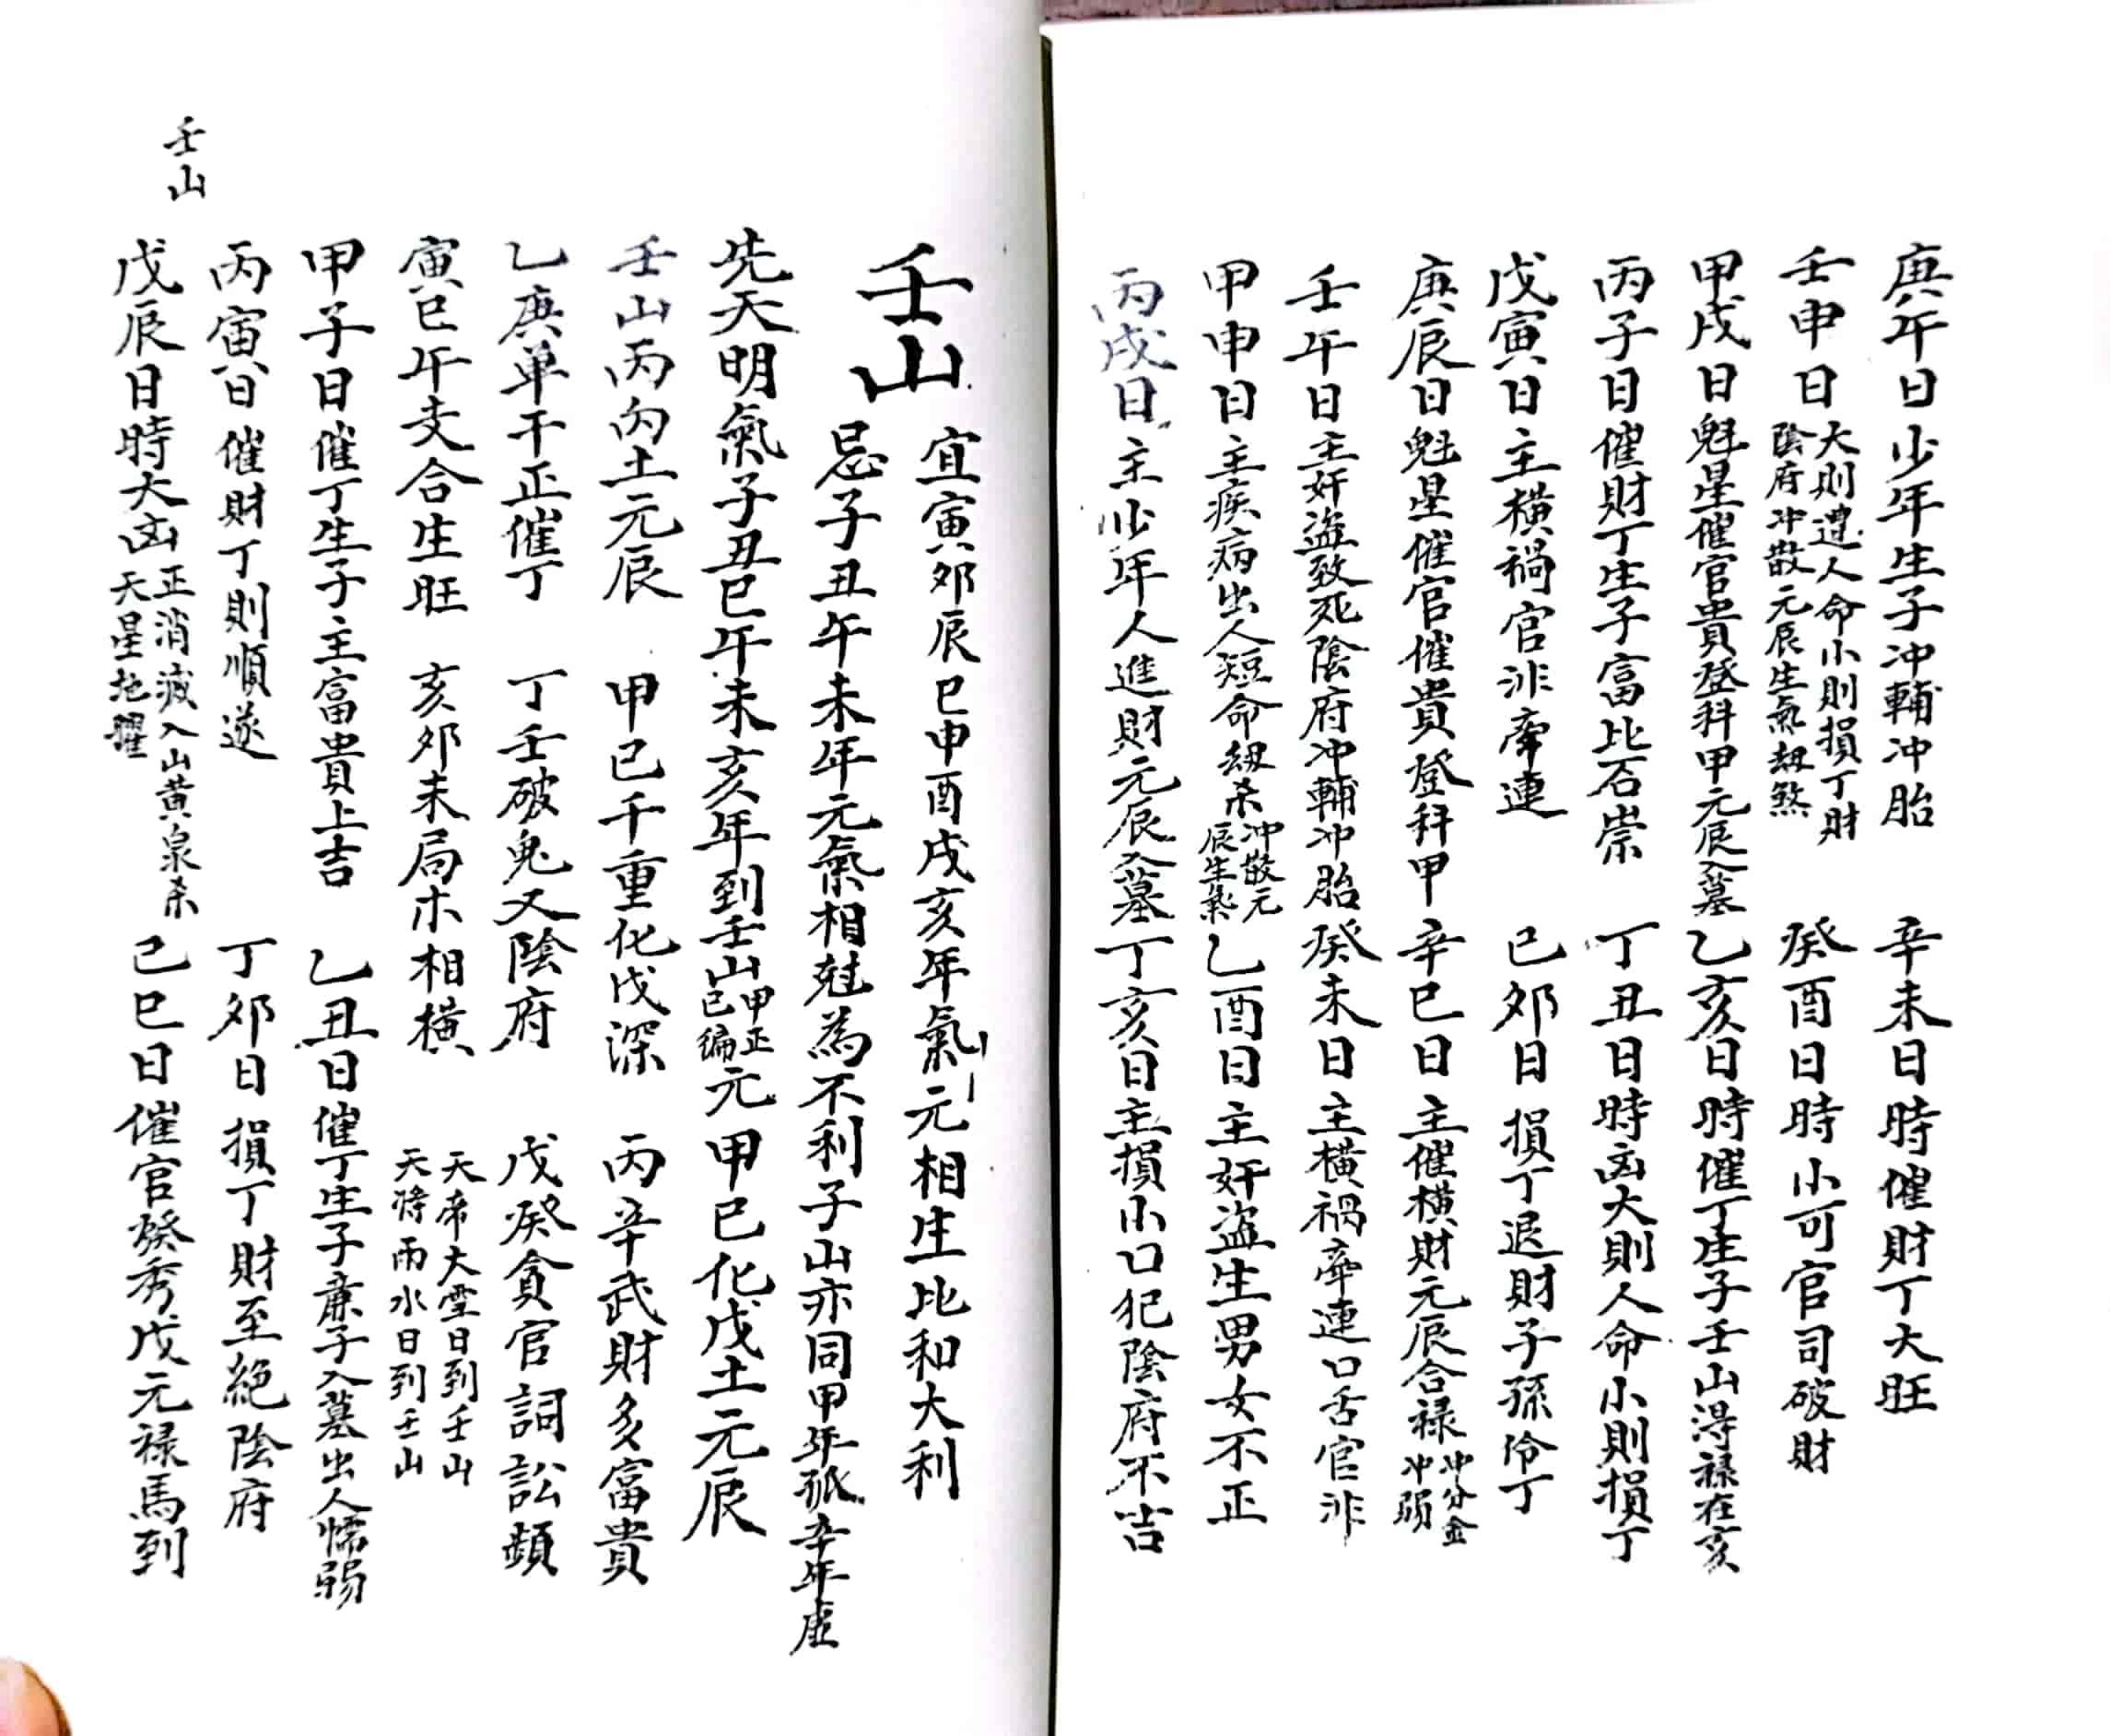 庚午日少年生子冲輔冲胎 辛未日時催財丁大旺
壬申日大則遭人命小則損丁財陰府冲散元辰生氣劫煞 癸酉日時小可官司破財
甲戌日魁星催官貴登科甲元辰入墓 乙亥日時催丁生子壬山得祿在亥
丙子日催財丁生子富比石崇 丁丑日時凶大則人命小則損丁
戊寅日主横禍官非牽連 己卯日損丁退財子孫伶丁
庚辰日魁星催官催貴登科甲 辛巳日主催横財元辰合祿冲分金冲弱
壬午日主奸盜致死陰府冲輔冲胎 癸未日主横禍牽連口舌官非
甲申日主疾病出人短命劫杀冲散元辰生氣 乙酉日主奸盜生男女不正
丙戌日主少年人進財元辰入墓 丁亥日主損小口犯陰府不吉
壬山 宜寅卯辰巳申酉戌亥年氣元相生比和大利
忌子丑午未年元氣相尅為不利子山亦同甲年孤辛年虛
先天明氣子丑巳午未亥年到壬山甲正己编元 甲己化戊土元辰
壬山丙向土元辰 甲己千重化戊深 丙辛武財多富貴
乙庚单干正催丁 丁壬破鬼又陰府 戊癸貪官詞訟頻
寅巳午支合生旺 亥卯未局木相橫 天帝大雪日到壬山
天将雨水日到壬山
甲子日催丁生子主富貴上吉 乙丑日催丁生子廉子入墓出人懦弱
丙寅日催財丁則順遂 丁卯日損丁財至絕陰府
戊辰日時大凶正消滅入山黄泉杀天星地曜 己巳日催官發秀戊元祿馬到
壬山